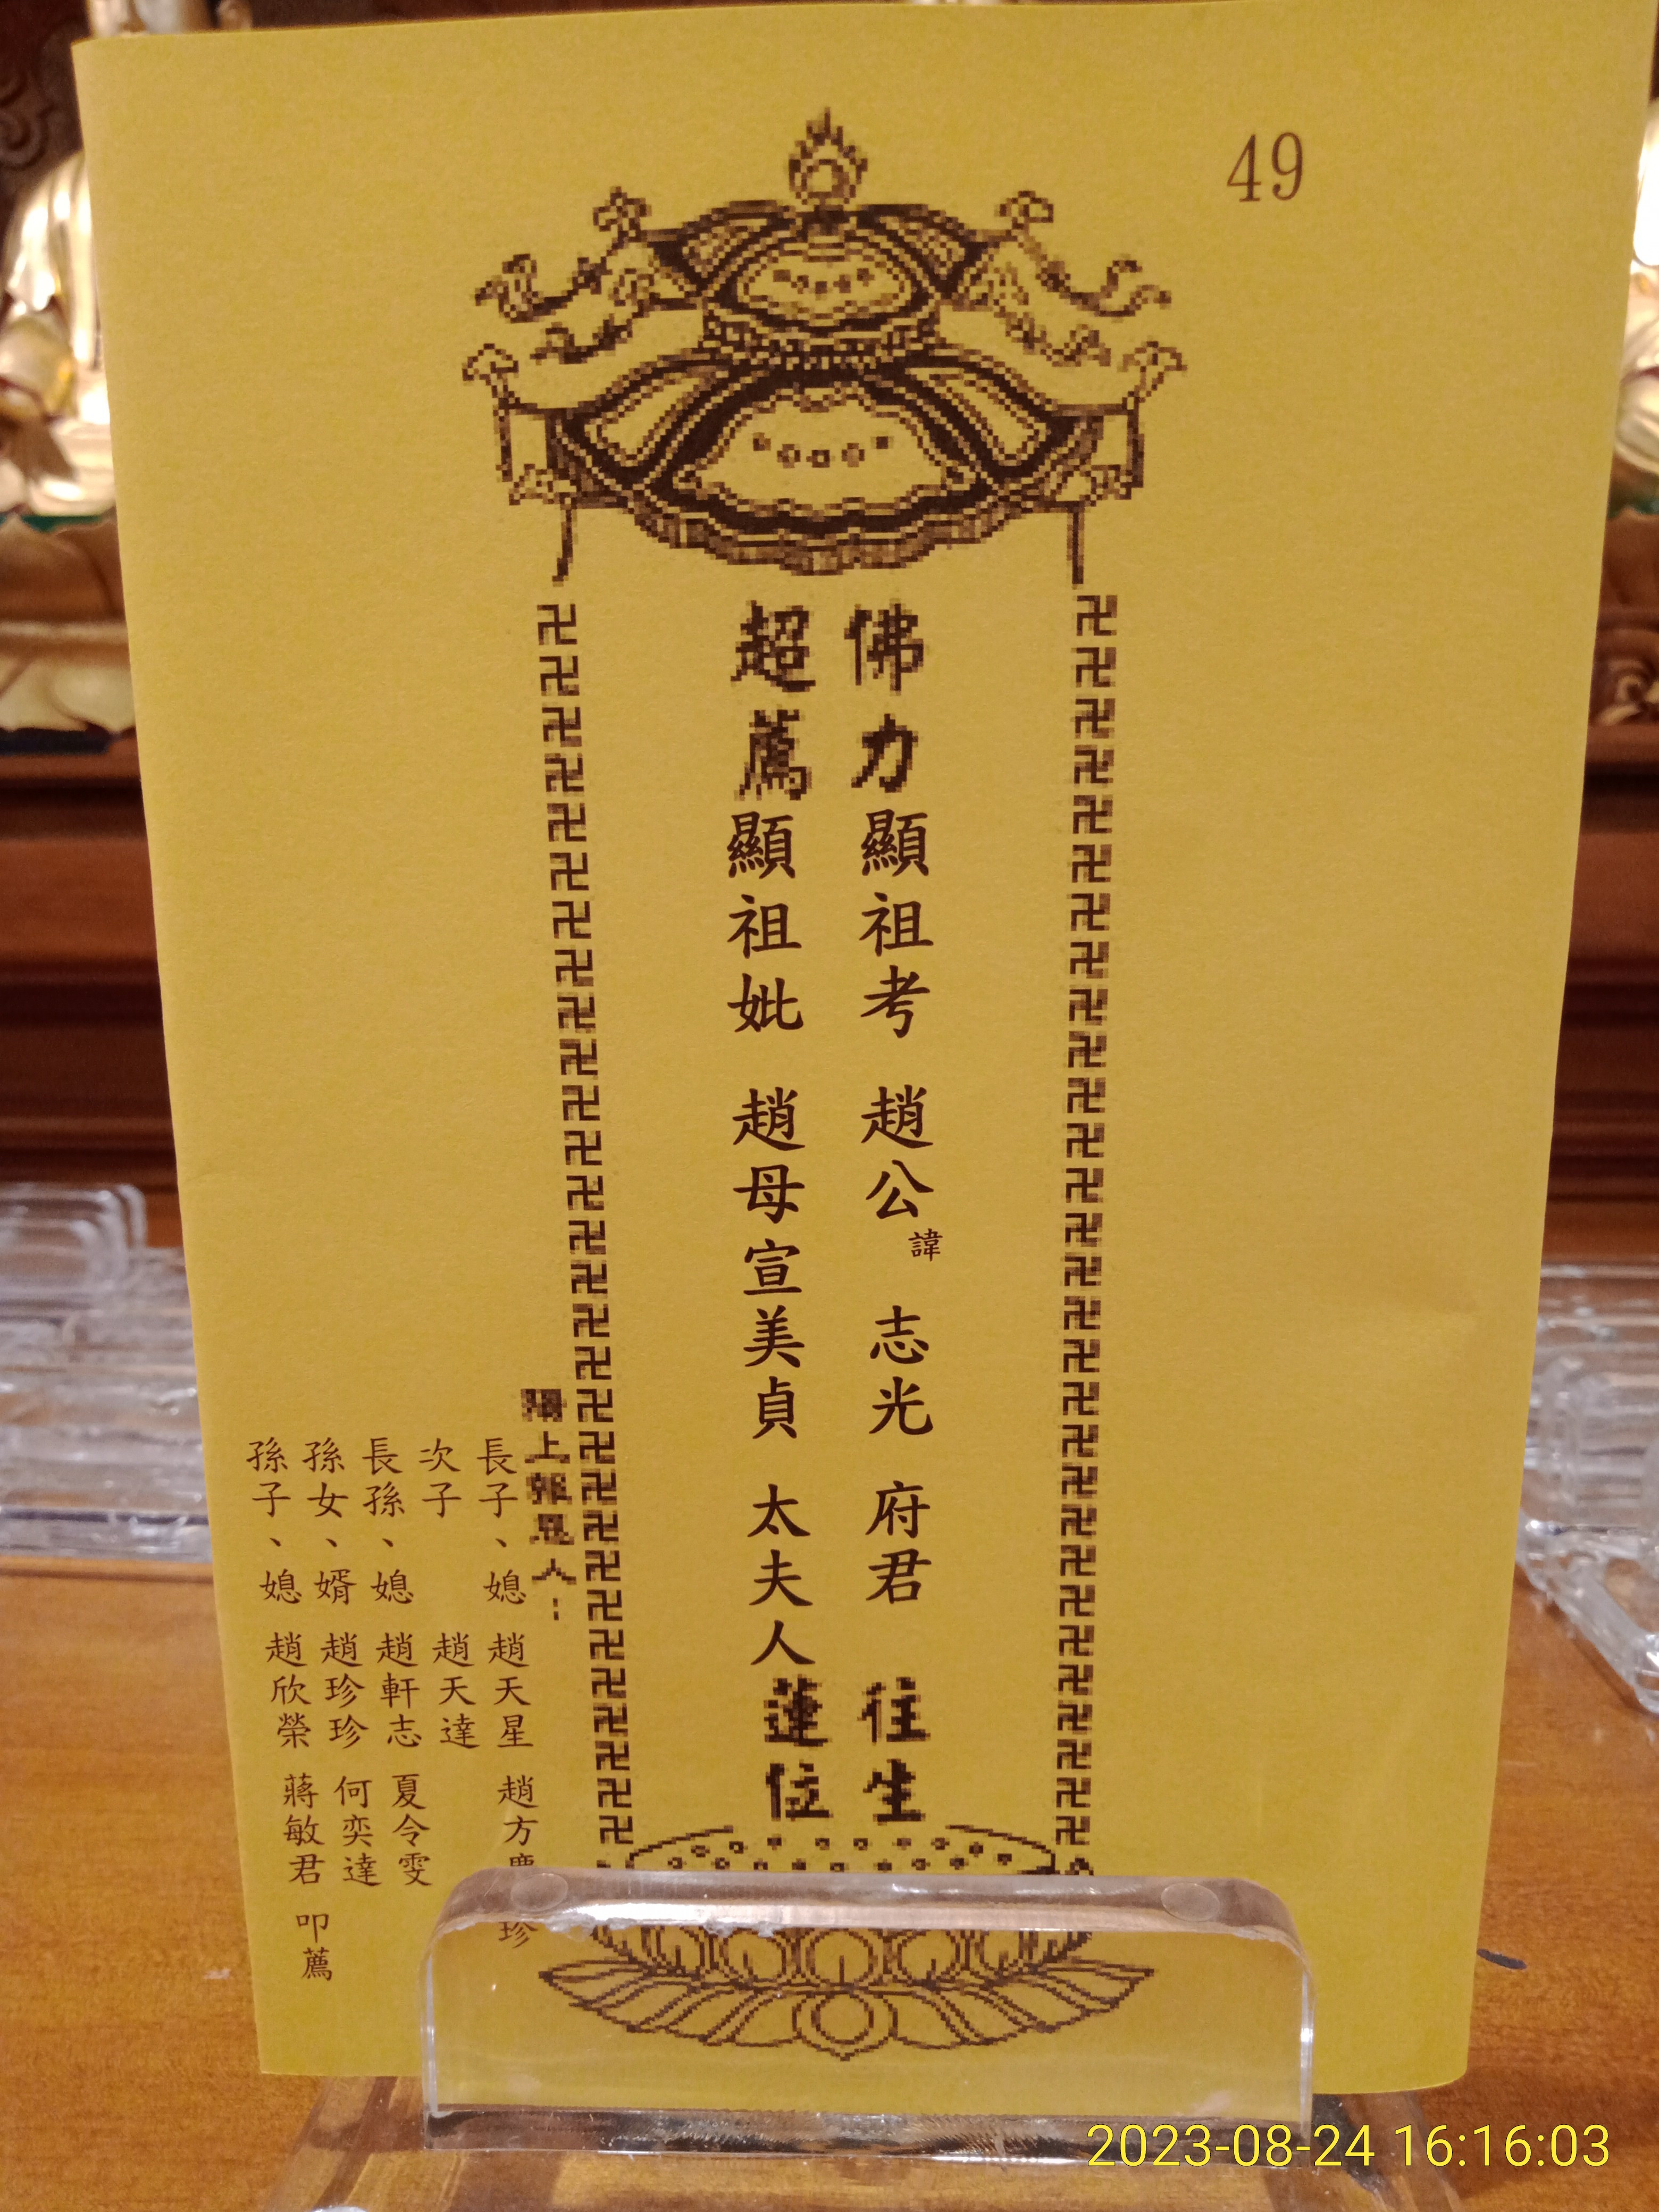 49
佛力顯祖考 趙公諱 志光 府君 往生
超薦顯祖妣 趙母宣美貞 太夫人蓮位
陽上報恩人:
長子、媳 趙天星 趙方慶珍
次子 趙天達
長孫、媳 趙軒志 夏令雯
孫女、婿 趙珍珍 何奕達
孫子、媳 趙欣榮 蔣敏君 叩薦
2023-08-24 16:16:03